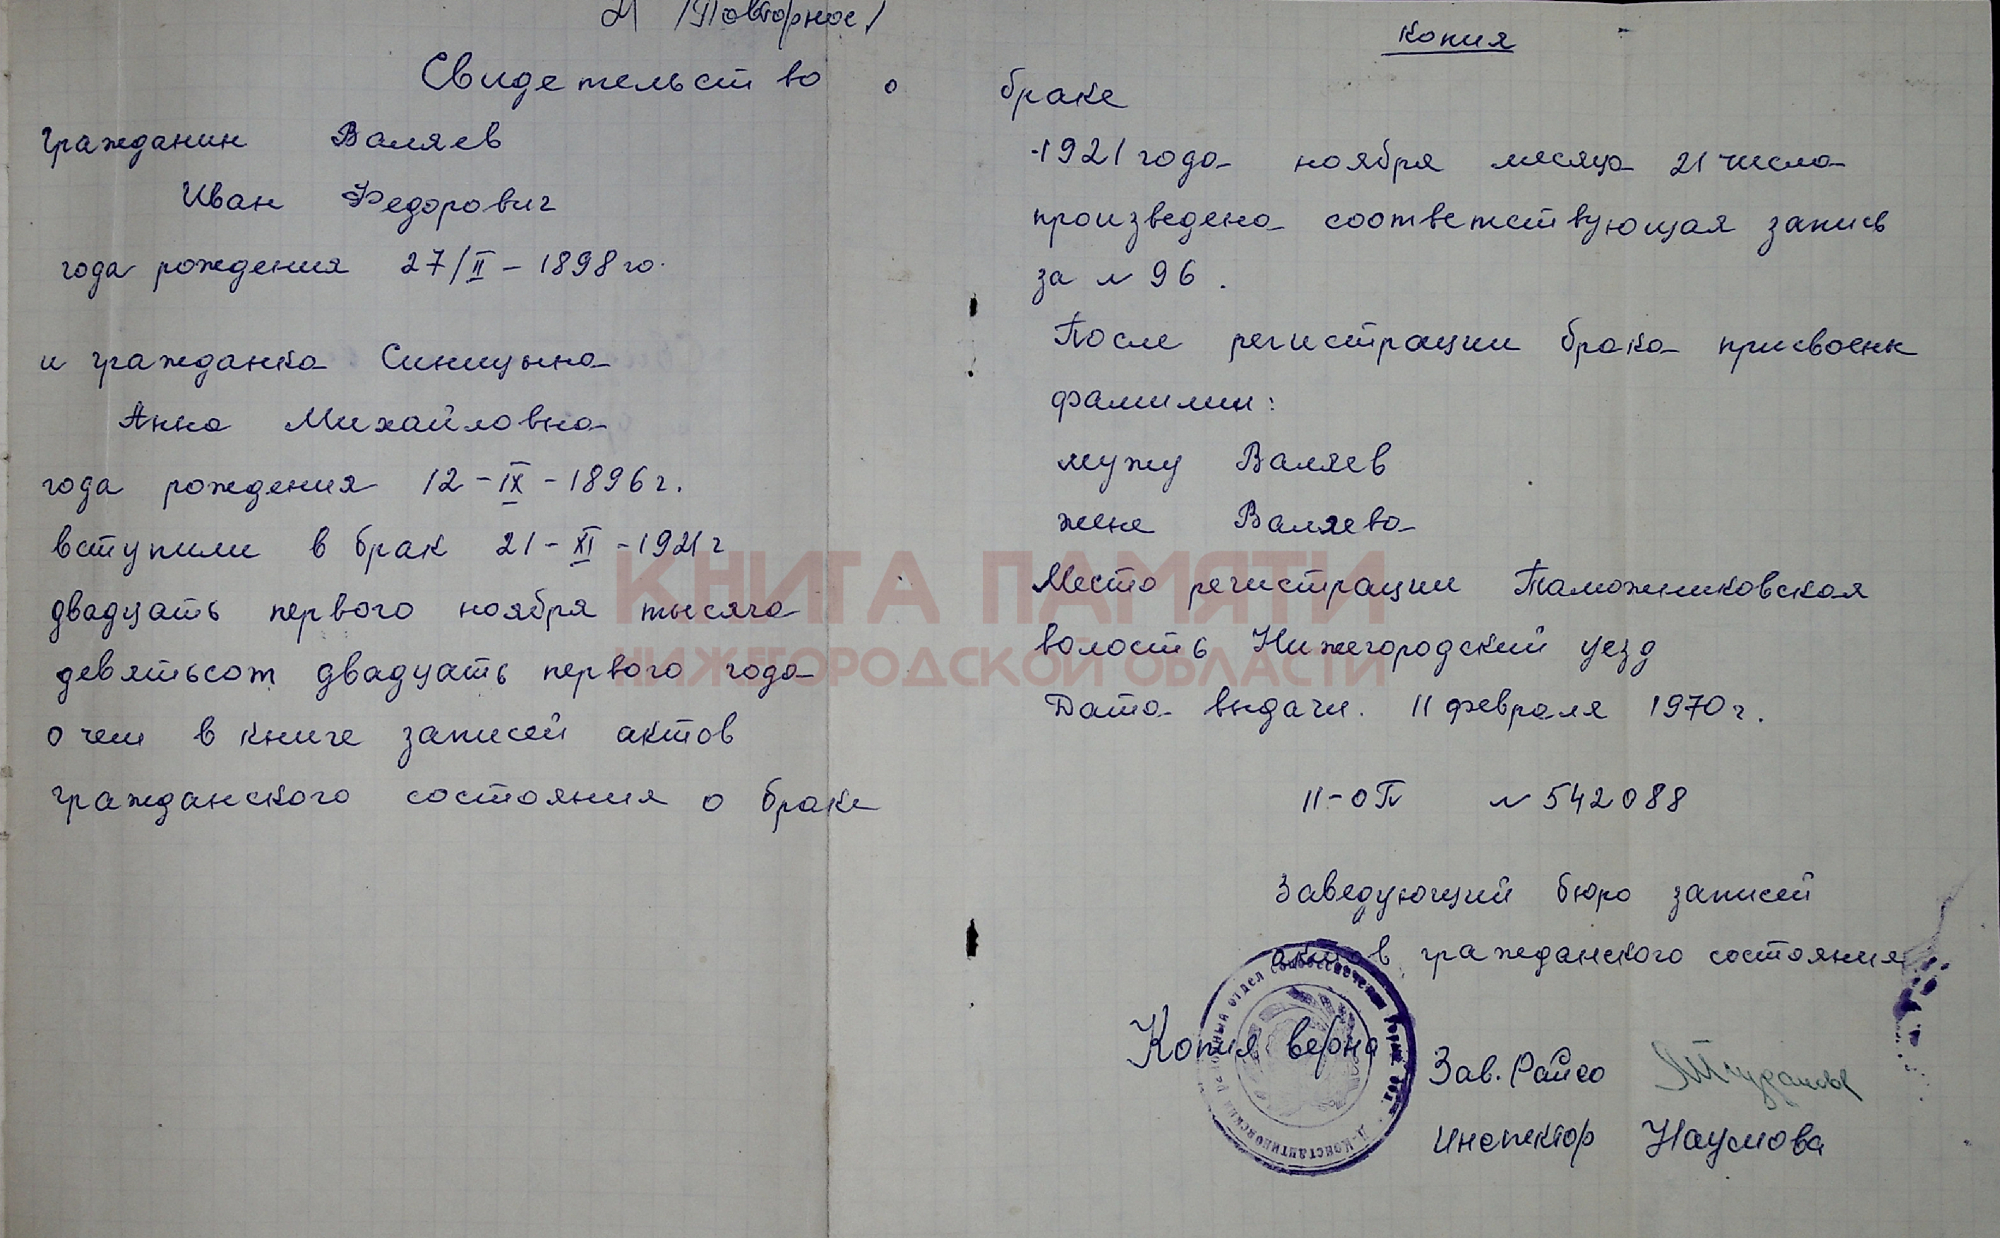 /Повторное/
Копия
Свидетельство о браке
Гражданин Валяев
Иван Федорович
года рождения 27/II - 1898 го.
и гражданка Синицына
Анна Михайловна
года рождения 12-IX-1896 г.
вступили в брак 21-XI-1921 г
двадцать первого ноября тысяча
девятьсот двадцать первого года
о чем в книге записей актов
гражданского состояния о браке
1921 года ноября месяца 21 числа
произведена соответствующая запись
за N 96.
После регистрации брака присвоены
фамилии:
мужу Валяев
жене Валяева
Место регистрации Таможниковская
волость Нижегородский уезд
Дата выдачи. 11 февраля 1970 г.
II-ОП N 542088
Заведующий бюро записей
актов гражданского состояния
Копия верна
Зав. Райсо
Инспектор Наумова
КНИГА ПАМЯТИ
НИЖЕГОРОДСКОЙ ОБЛАСТИ
Д-Константиновский районный отдел соцобеспечения Горьк. обл.